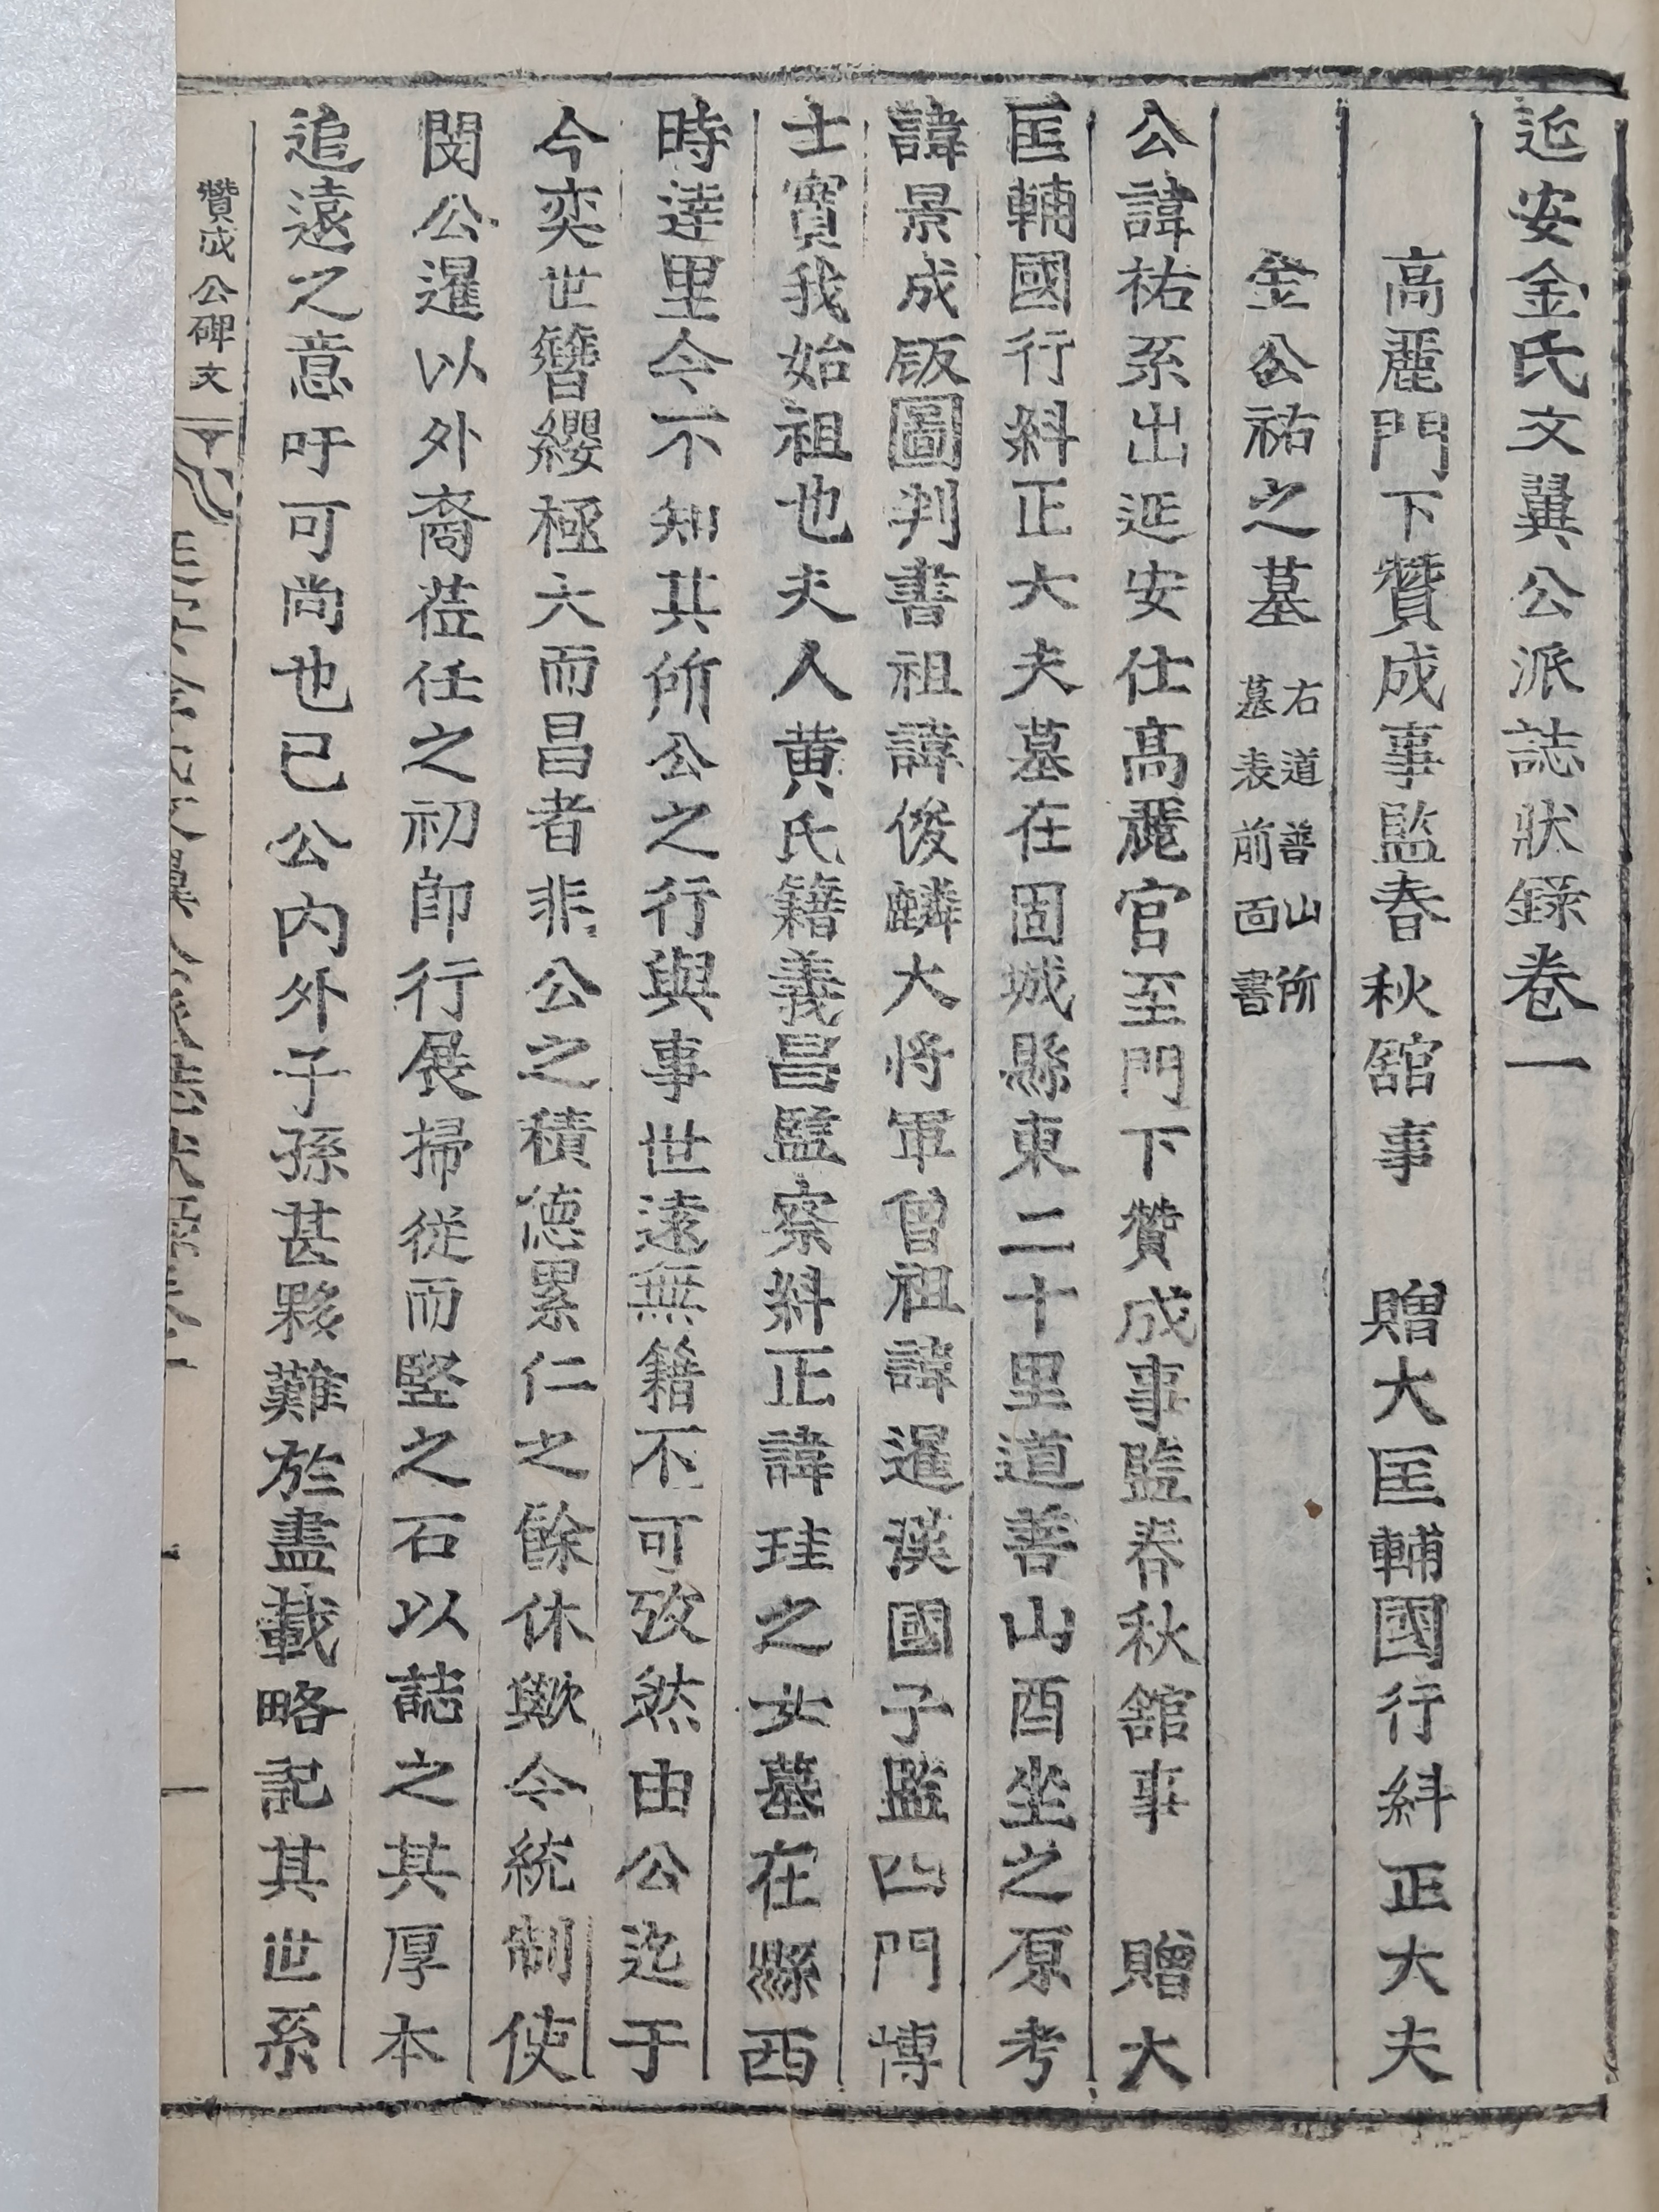 延安金氏文翼公派誌狀錄卷一
高麗門下贊成事監春秋舘事 贈大匡輔國行糾正大夫
金公祐之墓 右道善山所
墓表前面書
公諱祐系出延安仕高麗官至門下贊成事監春秋舘事 贈大
匡輔國行糾正大夫墓在固城縣東二十里道善山酉坐之原考
諱景成版圖判書祖諱俊麟大将軍曾祖諱暹漢國子監四門博
士實我始祖也夫人黄氏籍義昌監察糾正諱珪之女墓在縣西
時達里今不知其所公之行與事世遠無籍不可攷然由公迄于
今奕世簪纓極大而昌者非公之積德累仁之餘休歟今統制使
閔公暹以外裔莅任之初即行展掃從而竪之石以誌之其厚本
追遠之意吁可尚也已公内外子孫甚夥難於盡載略記其世系
贊成公碑文